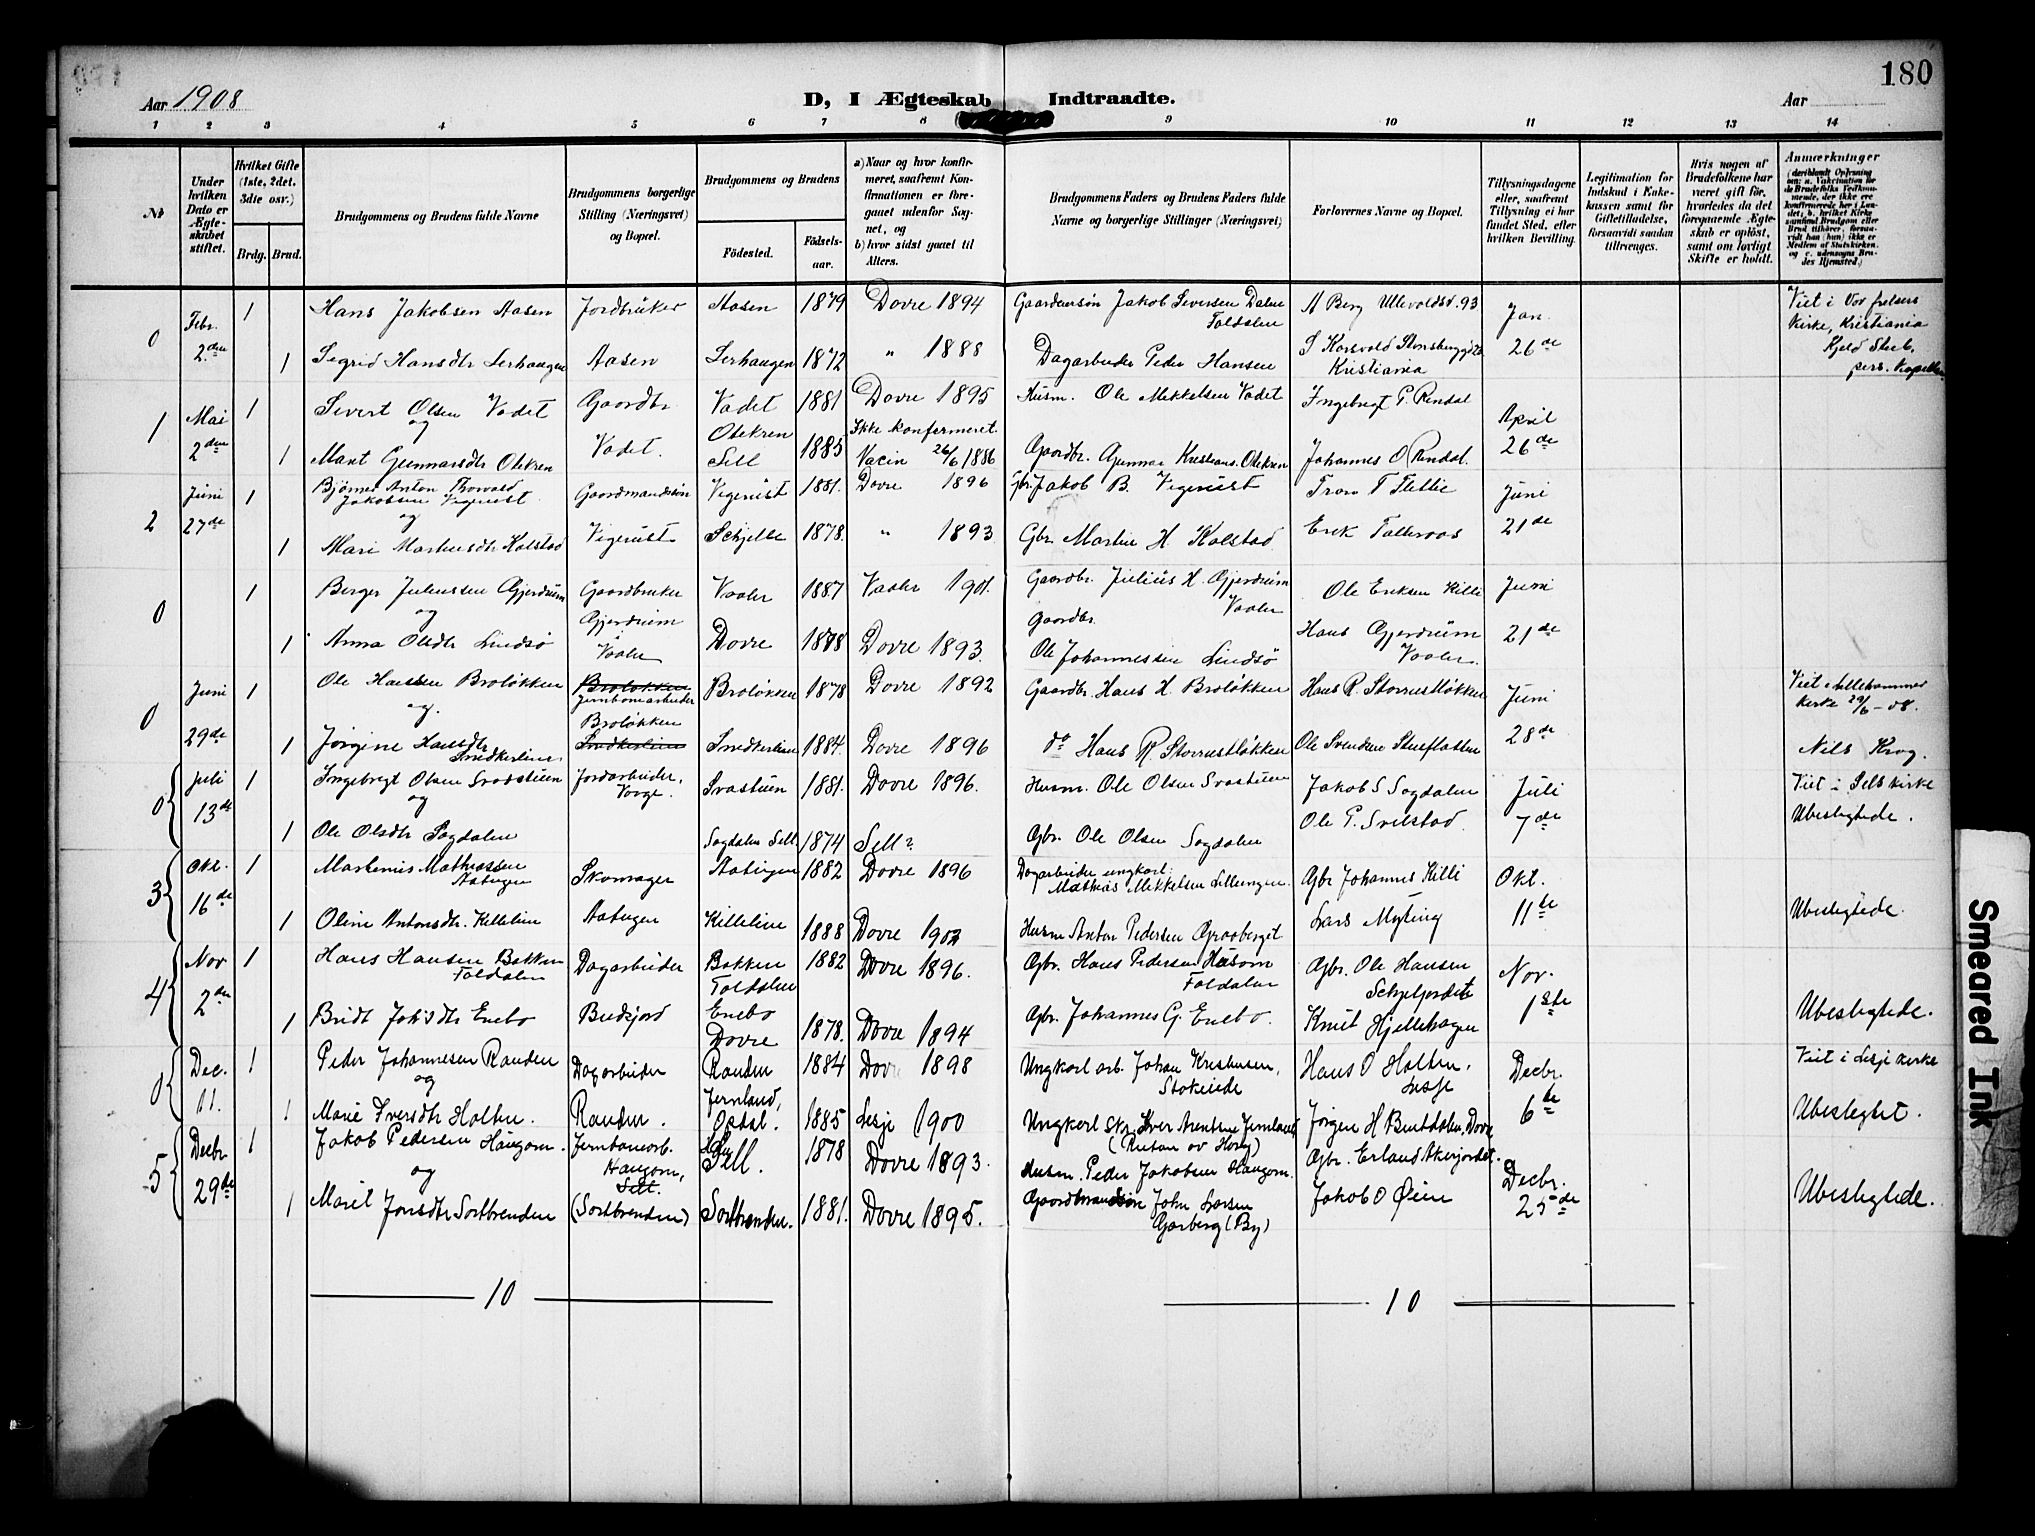 180
Aar 1908
D, I Ægteskab Indtraadte.
Aar
1 2 3 4 5 6 7 8 9 10 11 12 13 14
№
Under hvilken Dato er Ægteskabet stiftet.
Hvilket Gifte (1ste, 2det, 3die osv.)
Brdg. Brud.
Brudgommens og Brudens fulde Navne
Brudgommens borgerlige Stilling (Næringsvei) og Bopæl.
Brudgommens og Brudens
Födested.
Födselsaar.
a) Naar og hvor konfirmeret, saafremt Konfirmationen er foregaaet udenfor Sognet, og
b) hvor sidst gaaet til Alters.
Brudgommens Faders og Brudens Faders fulde Navne og borgerlige Stillinger (Næringsvei)
Forlovernes Navne og Bopæl.
Tillysningsdagene eller, saafremt Tillysning ei har fundet Sted, efter hvilken Bevilling.
Legitimation for Indskud i Enkekassen samt for Giftetilladelse, forsaavidt saadan tiltrænges.
Hvis nogen af Brudefolkene har været gift för, hvorledes da det foregaaende Ægteskab er oplöst, samt om lovligt Skifte er holdt.
Anmærkninger
0 Febr. 2den 1 Hans Jakobsen Aasen Jordbruker Aasen 1879 Dovre 1894 Gaardmansön Jakob Seversen Dalen Foldalen A Berg Ullevoldsv. 93 Jan. 26de Viet i Vor frelsers Kirke, Kristiania Kjeld Stub, pers. Kapellan
1 Segrid Hansdtr Lerhaugen Aasen Lerhaugen 1872 " 1888 Dagarbeider Peder Hansen Kristiania
1 Mai 2den 1 Sivert Olsen Vadet Gaardbr. Vadet 1881 Dovre 1895 Husm. Ole Mikkelsen Vadet Ingebrigt P. Rindal April 26de
og
1 Marit Gunnarsdtr Olekren Vadet. Olekren Sell 1885 Ikke konfirmeret. Vacin 26/6 1886 Gaardbr. Gunnar Kristians. Olekren Johannes O Rindal.
2 Juni 27de 1 Bjørner Anton Thorvald Jakobsen Vigerust Gaardmandssön Vigerust 1881. Dovre 1896 Gbr. Jakob B. Vigerust Tron T Flittie Juni 21de
og
1 Mari Martinsdtr Kolstad Vigerust Schjelle 1878. " 1893 Gbr. Martin H. Kolstad Erik Talleraas
0 1 Berger Juliussen Gjerdrum Gaardbruker Gjerdrum i Vaaler Vaaler 1887 Vaaler 1901. Gaardbr. Julius H. Gjerdrum Vaaler Ole Eriksen Killi Juni 21de
og
1 Anna Olsdtr Lindsö Dovre 1878 Dovre 1893. Gaardbr. Ole Johannessen Lindsö Hans Gjerdrum Vaaler.
0 Juni 29de 1 Ole Hansen Broløkken Broløkken Jernbanearbeider Broløkken Broløkken 1878 Dovre 1892 Gaardbr. Hans H. Broløkken Hans R. Storrustløkken Juni 28de Viet i Lillehammer kirke 29/6-08.
og.
1 Jørgine Hansdtr Smedkerlien. Smedkerlien Smedkerlien 1884. Dovre 1896 do Hans R. Storrustløkken Ole Svendsen Nils Krog.
0 Juli 13de 1 Ingebrigt Olsen Svastuen Jordarbeider, Vorge. Svastuen 1881. Dovre 1896. Husm. Ole Olsen Svastuen Jakob S Sogdalen Juli 7de Viet i Sels kirke
og
1 Ole Olsdtr Sogdalen Sogdalen Sell 1874 Sell? Gbr. Ole Olsen Sogdalen Ole P. Svelstad. Ubeslegtede.
3 Okt. 16de 1 Markenus Mathiassen Aatugen Skomager Aatugen 1882 Dovre 1896 Dagarbeider ungkarl. Mathias Mikkelsen Gbr Johannes Killi Okt. 11te
1 Oline Antonsdtr. Killelien Aatugen Killelien 1888 Dovre 1902 Husm Anton Pedersen Graaberget Lars Myting Ubeslegtede.
4 Nov 2den 1 Hans Hansen Bakken Foldalen Dagarbeider Bakken Foldalen 1882 Dovre 1896. Gbr. Hans Pedersen Husom Foldalen Gbr. Ole Hansen Nov. 1ste
1 Bridt Johsdtr Enebo Budejord Enebo Dovre 1878. Dovre 1894 Gbr. Johannes G. Enebo. Knut Hjellehagen Ubeslegtede.
0 Dec. 11. 1 Peder Johannesen Randen Dagarbeider Randen 1884 Dovre 1898 Ungkarl arb. Johan Kristiansen, Hans O Holten, Lesje Decbr. 6te Viet i Lesje kirke
og
1 Marie Iversdtr Holten. Randen. Jernland, Opdal. 1885 Lesje 1900 Ungkarl Skr. Iver Arentsen Jernland Jørgen H Bentdalen, Dovre Ubeslegtet.
5 Decbr 29de 1 Jakob Pedersen Haugom. Jernbanearb. Haugom, Sell. Sell. 1878 Dovre 1893. Husm. Peder Jakobsen Haugom. Gbr. Erland Akerjordet. Decbr. 25de
og
1 Marit Jonsdtr Sortbrenden (Sortbrenden) Sortbrenden. 1881. Dovre 1895. Gaardmandssøn John Larsen Garberg (By) Jakob O Øien Ubeslegtede.
10
10
Smeared Ink